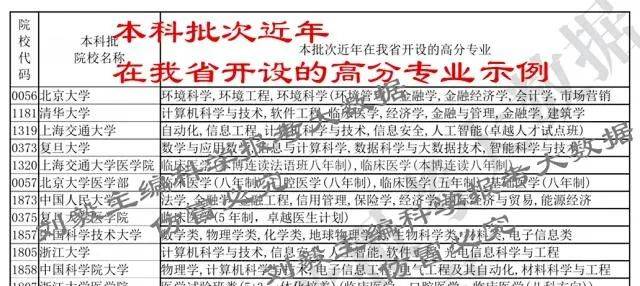 本科批次近年
在我省开设的高分专业示例
院校代码 本科批院校名称 本批次近年在我省开设的高分专业
0056 北京大学 环境科学,环境工程,环境科学(环境管理),金融学,金融经济学,会计学,市场营销
1181 清华大学 计算机科学与技术,软件工程,临床医学,经济学,金融与管理,金融学,建筑学
1319 上海交通大学 自动化,信息工程,计算机科学与技术,信息安全,人工智能(卓越人才试点班)
0373 复旦大学 数学与应用数学,信息与计算科学,数据科学与大数据技术,智能科学与技术
1320 上海交通大学医学院 临床医学(本博连读法语班八年制),临床医学(本博连读八年制)
0057 北京大学医学部 临床医学(八年制),口腔医学(八年制),临床医学(五年制),基础医学(八年制)
1873 中国人民大学 法学,金融学,金融工程,信用管理,保险学,经济学,经济与贸易,能源经济
0375 复旦大学医学院 临床医学(5年制,卓越医生计划)
1857 中国科学技术大学 数学类,物理学类,化学类,地球物理学类,生物科学类,材料类,电子信息类
1805 浙江大学 计算机科学与技术,信息安全,人工智能,软件工程,光电信息科学与工程
1858 中国科学院大学 物理学,计算机科学与技术,电子信息工程,电气工程及其自动化,材料科学与工程
1807 浙江大学医学院
刘毅主编科学报考大数据
仿冒必究